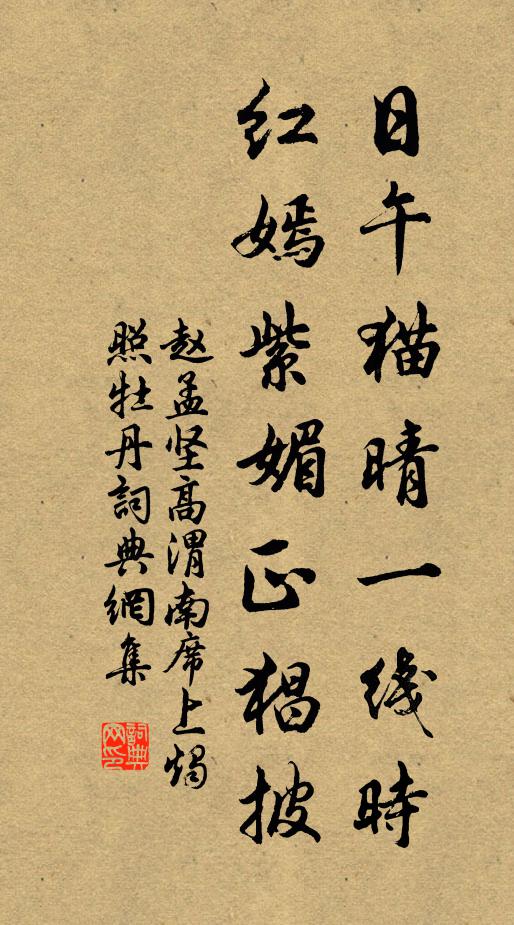 日午猫晴一綫時
红嫣紫媚正猖披
赵孟坚高渭南席上燭
照牡丹詞典網集
詞典
网印